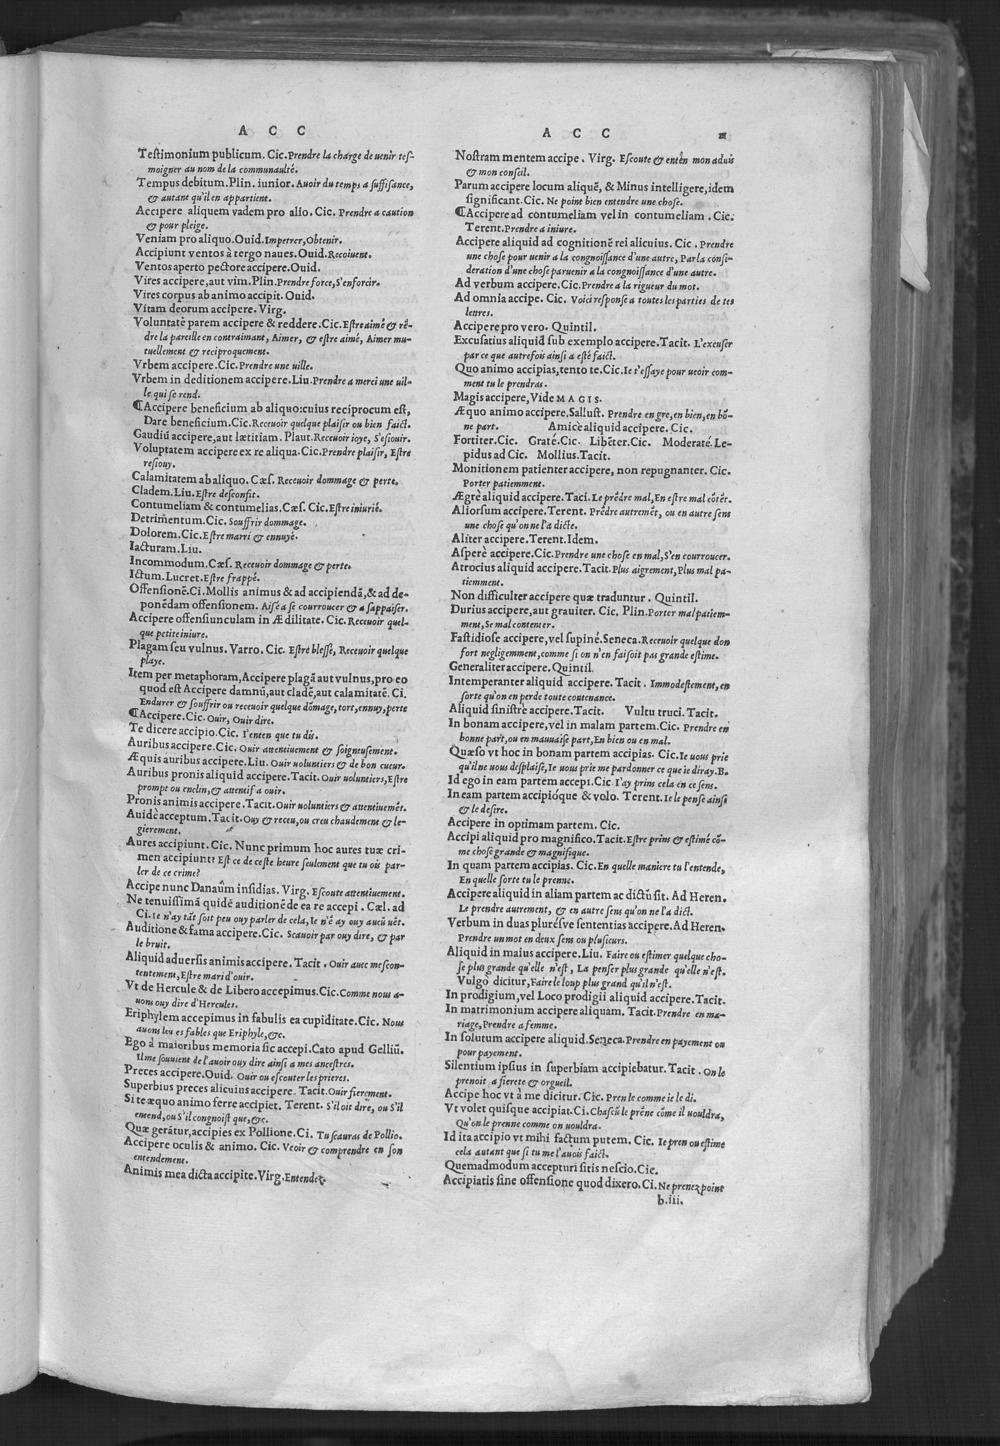 A C C
Teſtimonium publicum. Cic. Prendre la charge de uenir teſ-
moigner au nom de la communaulté.
Tempus debitum. Plin. iunior. Auoir du temps a ſuffiſance,
& autant qu'il en appartient.
Accipere aliquem vadem pro alio. Cic. Prendre a caution
& pour pleige.
Veniam pro aliquo. Ouid. Impetrer, Obtenir.
Accipiunt ventos à tergo naues. Ouid. Recoiuent.
Ventos aperto pectore accipere. Ouid.
Vires accipere, aut vim. Plin. Prendre force, S'enforcir.
Vires corpus ab animo accipit. Ouid.
Vitam deorum accipere. Virg.
Voluntatē parem accipere & reddere. Cic. Eſtre aimé & rē-
dre la pareille en contraimant, Aimer, & eſtre aimé, Aimer mu-
tuellement & reciproquement.
Vrbem accipere. Cic. Prendre une uille.
Vrbem in deditionem accipere. Liu. Prendre a merci une uil-
le qui ſe rend.
¶Accipere beneficium ab aliquo: cuius reciprocum eſt,
Dare beneficium. Cic. Receuoir quelque plaiſir ou bien faict.
Gaudiū accipere, aut lætitiam. Plaut. Receuoir ioye, S'eſiouir.
Voluptatem accipere ex re aliqua. Cic. Prendre plaiſir, Eſtre
reſiouy.
Calamitatem ab aliquo. Cæſ. Receuoir dommage & perte.
Cladem. Liu. Eſtre deſconfit.
Contumeliam & contumelias. Cæſ. Cic. Eſtre iniurié.
Detrimentum. Cic. Souffrir dommage.
Dolorem. Cic. Eſtre marri & ennuyé.
Iacturam. Liu.
Incommodum. Cæſ. Receuoir dommage & perte.
Ictum. Lucret. Eſtre frappé.
Offenſionē. Ci. Mollis animus & ad accipiendā, & ad de-
ponēdam offenſionem. Aiſé a ſe courroucer & a ſappaiſer.
Accipere offenſiunculam in Ædilitate. Cic. Receuoir quel-
que petite iniure.
Plagam ſeu vulnus. Varro. Cic. Eſtre bleſſé, Receuoir quelque
playe.
Item per metaphoram, Accipere plagā aut vulnus, pro eo
quod eſt Accipere damnū, aut cladē, aut calamitatē. Ci.
Endurer & ſouffrir ou receuoir quelque dōmage, tort, ennuy, perte
¶Accipere. Cic. Ouir, Ouir dire.
Te dicere accipio. Cic. I'enten que tu dis.
Auribus accipere. Cic. Ouir attentiuement & ſoigneuſement.
Æquis auribus accipere. Liu. Ouir uoluntiers & de bon cueur.
Auribus pronis aliquid accipere. Tacit. Ouir uoluntiers, Eſtre
prompt ou enclin, & attentif a ouir.
Pronis animis accipere. Tacit. Ouir uoluntiers & attentiuemēt.
Auidè acceptum. Tacit. Ouy & receu, ou creu chaudement & le-
gierement.
Aures accipiunt. Cic. Nunc primum hoc aures tuæ cri-
men accipiunt? Eſt ce de ceſte heure ſeulement que tu ois par-
ler de ce crime?
Accipe nunc Danaûm inſidias. Virg. Eſcoute attentiuement.
Ne tenuiſſimā quidē auditionē de ea re accepi. Cæl. ad
Ci. Ie n'ay tāt ſoit peu ouy parler de cela, Ie n'ē ay ouy aucū uēt.
Auditione & fama accipere. Cic. Scauoir par ouy dire, & par
le bruit.
Aliquid aduerſis animis accipere. Tacit. Ouir auec meſcon-
tentement, Eſtre mari d'ouir.
Vt de Hercule & de Libero accepimus. Cic. Comme nous a-
uons ouy dire d'Hercules.
Eriphylem accepimus in fabulis ea cupiditate. Cic. Nous
auons leu es fables que Eriphyle, &c.
Ego à maioribus memoria ſic accepi. Cato apud Gelliū.
Il me ſouuient de l'auoir ouy dire ainſi a mes anceſtres.
Preces accipere. Ouid. Ouir ou eſcouter les prieres.
Superbius preces alicuius accipere. Tacit. Ouir fierement.
Si te æquo animo ferre accipiet. Terent. S'il oit dire, ou S'il
entend, ou S'il congnoiſt que, &c.
Quæ gerātur, accipies ex Pollione. Ci. Tu ſcauras de Pollio.
Accipere oculis & animo. Cic. Veoir & comprendre en ſon
entendement.
Animis mea dicta accipite. Virg. Entendez.
A C C
Noſtram mentem accipe. Virg. Eſcoute & entēn mon aduis
& mon conſeil.
Parum accipere locum aliquē, & Minus intelligere, idem
ſignificant. Cic. Ne point bien entendre une choſe.
¶Accipere ad contumeliam vel in contumeliam. Cic.
Terent. Prendre a iniure.
Accipere aliquid ad cognitionē rei alicuius. Cic. Prendre
une choſe pour uenir a la congnoiſſance d'une autre, Par la conſi-
deration d'une choſe paruenir a la congnoiſſance d'une autre.
Ad verbum accipere. Cic. Prendre a la rigueur du mot.
Ad omnia accipe. Cic. Voici reſponſe a toutes les parties de tes
lettres.
Accipere pro vero. Quintil.
Excuſatius aliquid ſub exemplo accipere. Tacit. L'excuſer
par ce que autrefois ainſi a eſté faict.
Quo animo accipias, tento te. Cic. Ie t'eſſaye pour ueoir com-
ment tu le prendras.
Magis accipere, Vide MAGIS.
Æquo animo accipere. Salluſt. Prendre en gre, en bien, en bō-
ne part. Amicè aliquid accipere. Cic.
Fortiter. Cic. Gratè. Cic. Libēter. Cic. Moderatè. Le-
pidus ad Cic. Mollius. Tacit.
Monitionem patienter accipere, non repugnanter. Cic.
Porter patiemment.
Ægrè aliquid accipere. Taci. Le prēdre mal, En eſtre mal cōtēt.
Aliorſum accipere. Terent. Prēdre autremēt, ou en autre ſens
une choſe qu'on ne l'a dicte.
Aliter accipere. Terent. Idem.
Aſperè accipere. Cic. Prendre une choſe en mal, S'en courroucer.
Atrocius aliquid accipere. Tacit. Plus aigrement, Plus mal pa-
tiemment.
Non difficulter accipere quæ traduntur. Quintil.
Durius accipere, aut grauiter. Cic. Plin. Porter mal patiem-
ment, Se mal contenter.
Faſtidioſe accipere, vel ſupinè. Seneca. Receuoir quelque don
fort negligemment, comme ſi on n'en faiſoit pas grande eſtime.
Generaliter accipere. Quintil.
Intemperanter aliquid accipere. Tacit. Immodeſtement, en
ſorte qu'on en perde toute contenance.
Aliquid ſiniſtrè accipere. Tacit. Vultu truci. Tacit.
In bonam accipere, vel in malam partem. Cic. Prendre en
bonne part, ou en mauuaiſe part, En bien ou en mal.
Quæſo vt hoc in bonam partem accipias. Cic. Ie uous prie
qu'il ne uous deſplaiſe, Ie uous prie me pardonner ce que ie diray. B.
Id ego in eam partem accepi. Cic. I'ay prins cela en ce ſens.
In eam partem accipióque & volo. Terent. Ie le penſe ainſi
& le deſire.
Accipere in optimam partem. Cic.
Accipi aliquid pro magnifico. Tacit. Eſtre prins & eſtimé cō-
me choſe grande & magnifique.
In quam partem accipias. Cic. En quelle maniere tu l'entende,
En quelle ſorte tu le prenne.
Accipere aliquid in aliam partem ac dictū ſit. Ad Heren.
Le prendre autrement, & en autre ſens qu'on ne l'a dict.
Verbum in duas pluréſve ſententias accipere. Ad Heren.
Prendre un mot en deux ſens ou pluſieurs.
Aliquid in maius accipere. Liu. Faire ou eſtimer quelque cho-
ſe plus grande qu'elle n'eſt, La penſer plus grande qu'elle n'eſt.
Vulgò dicitur, Faire le loup plus grand qu'il n'eſt.
In prodigium, vel Loco prodigii aliquid accipere. Tacit.
In matrimonium accipere aliquam. Tacit. Prendre en ma-
riage, Prendre a femme.
In ſolutum accipere aliquid. Seneca. Prendre en payement ou
pour payement.
Silentium ipſius in ſuperbiam accipiebatur. Tacit. On le
prenoit a fierete & orgueil.
Accipe hoc vt à me dicitur. Cic. Pren le comme ie le di.
Vt volet quiſque accipiat. Ci. Chaſcū le prēne cōme il uouldra,
Qu'on le prenne comme on uouldra.
Id ita accipio vt mihi factum putem. Cic. Ie pren ou eſtime
cela autant que ſi tu me l'auois faict.
Quemadmodum accepturi ſitis neſcio. Cic.
Accipiatis ſine offenſione quod dixero. Ci. Ne prenez point
b.iii.